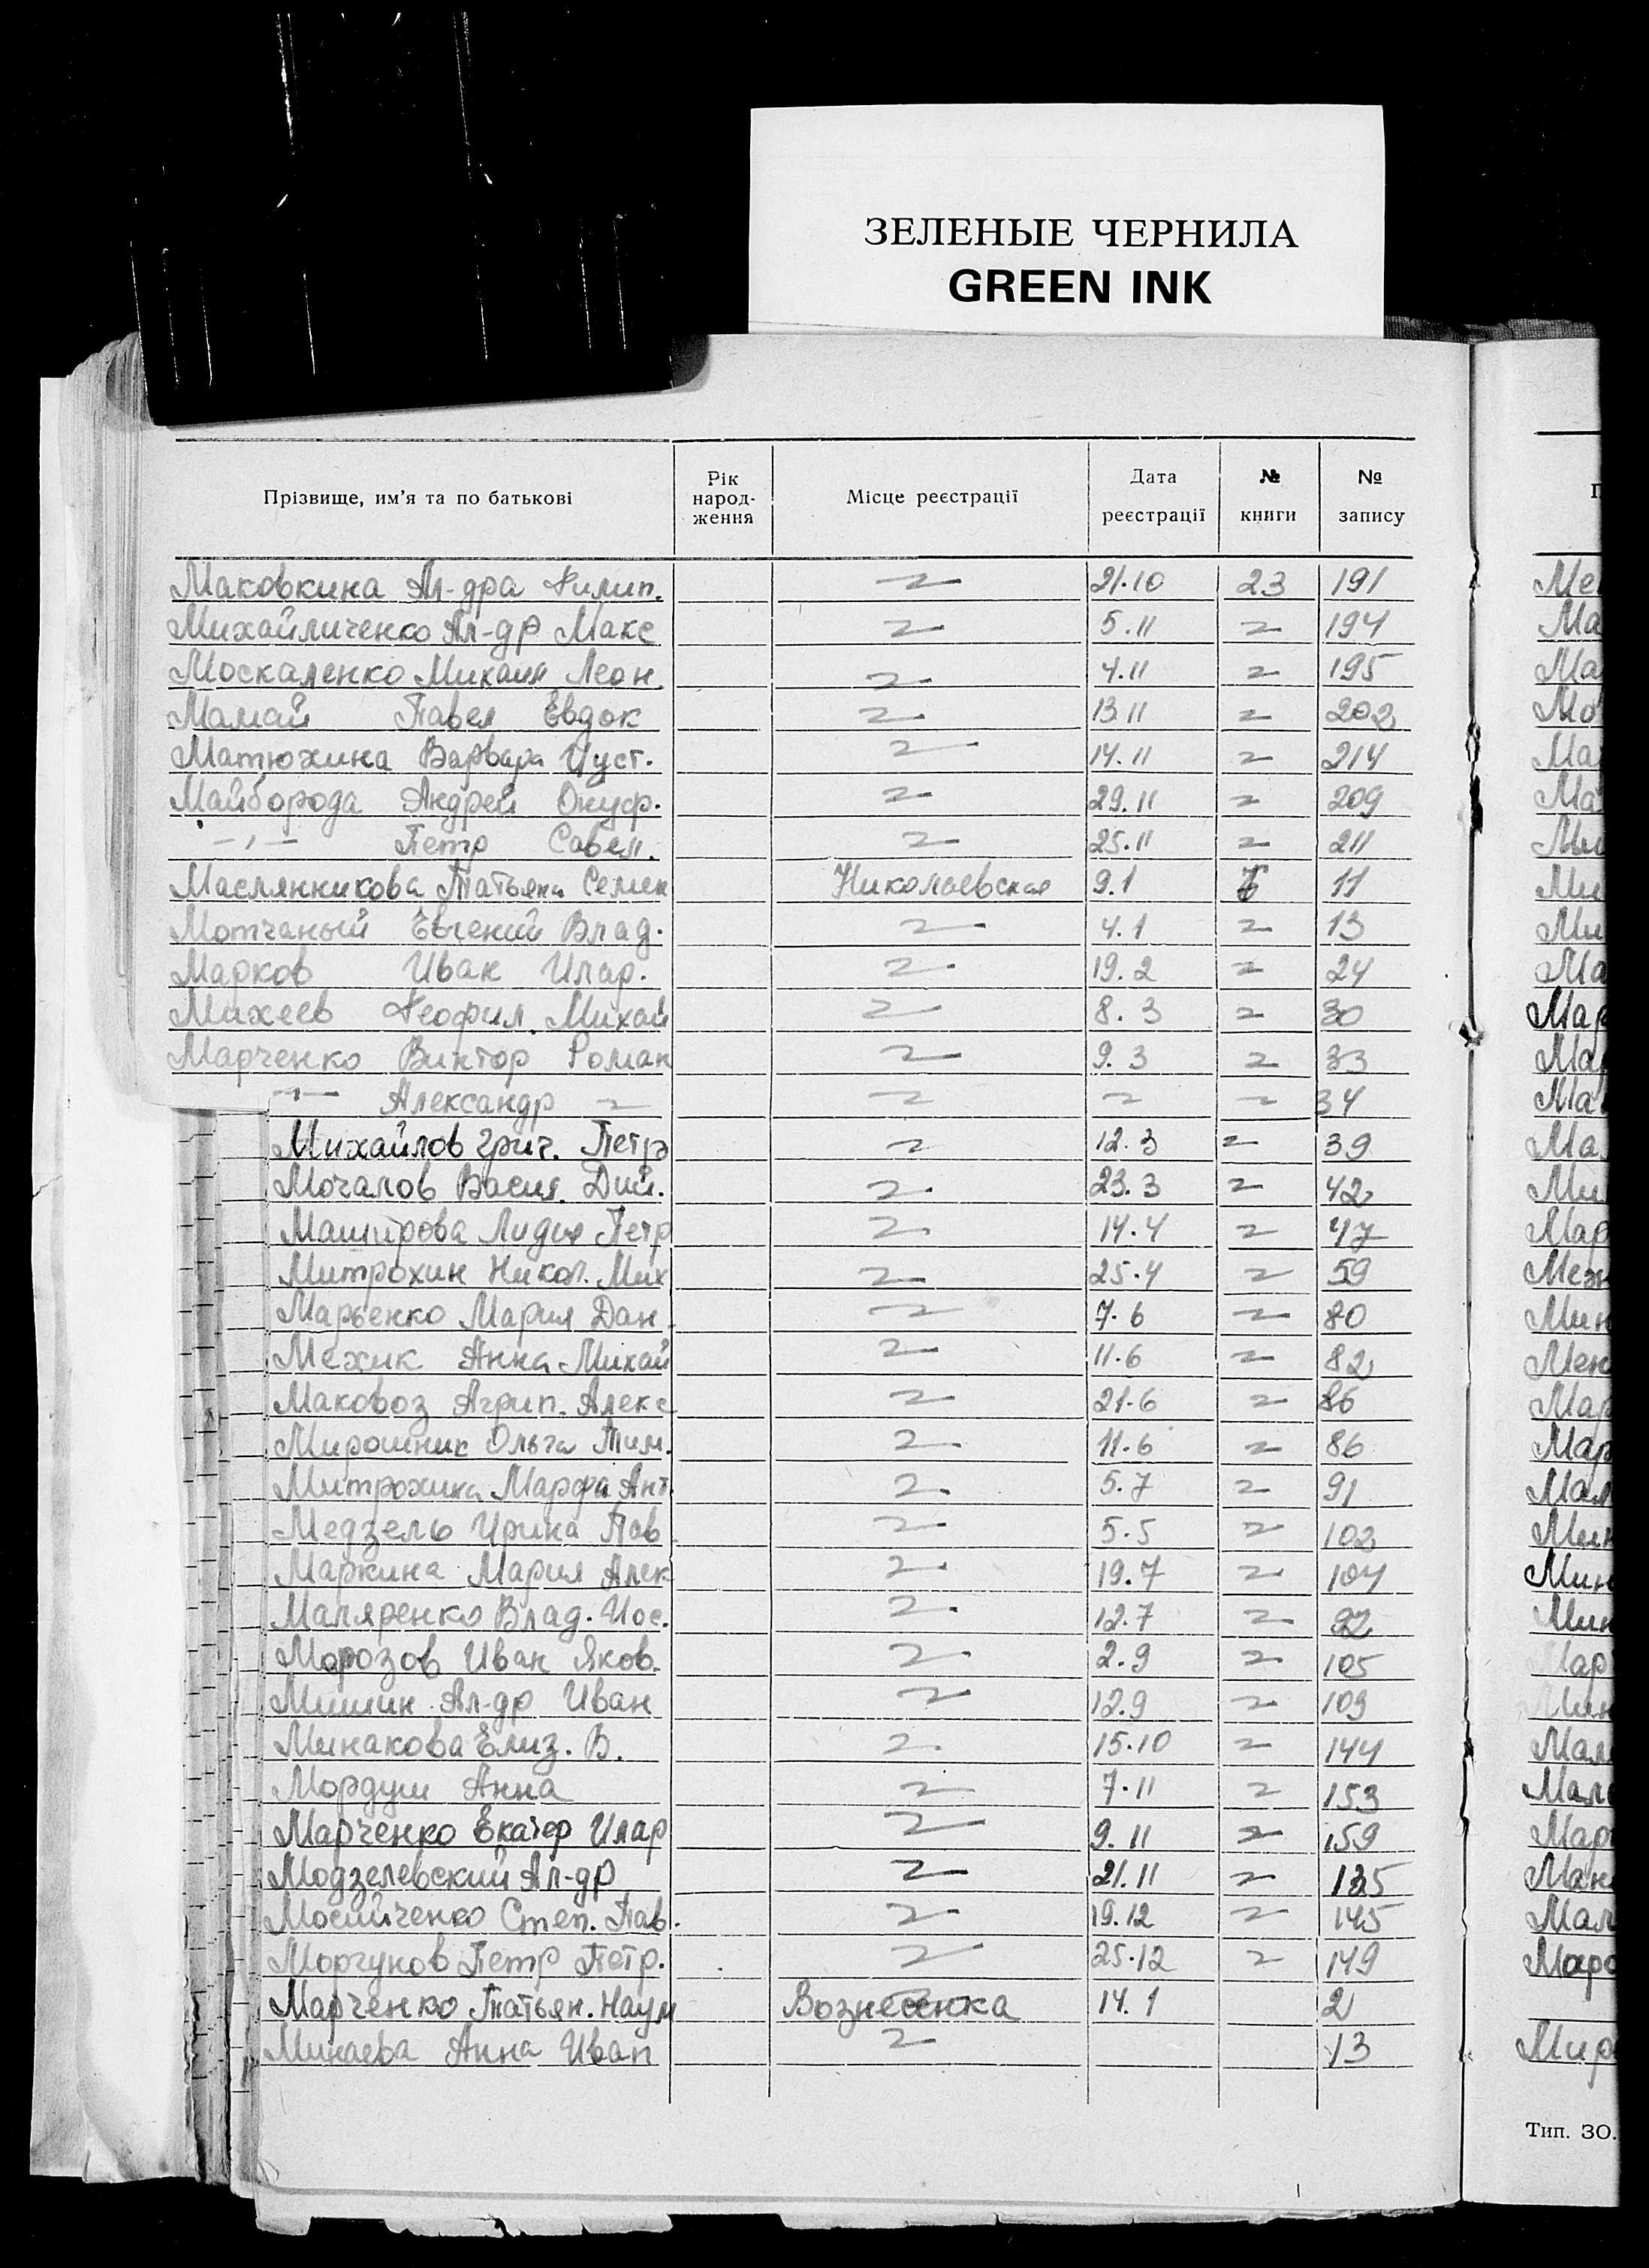 ЗЕЛЕНЫЕ ЧЕРНИЛА
GREEN INK
Прізвище, им'я та по батькові Рік народ-ження Місце реєстрації Дата реєстрації № книги № запису
Маковкина Ал-дра Филип. 21.10 23 191
Михайличенко Ал-др Макс 5.11 194
Москаленко Михаил Леон. 4.11 195
Мамай Павел Евдок 13 11 202
Матюхина Варвара Иуст. 14.11 214
Майборода Андрей Онуф. 29.11 209
-,,- Петр Савел. 25.11 211
Маслянникова Татьяна Семен Николаевская 9.1 11
Мотчаный Евгений Влад. 4.1 13
Марков Иван Илар. 19.2 24
Михеев Феофил. Михай 8.3 30
Марченко Виктор Роман 9.3 33
-"- Александр 34
Михайлов Григ. Петр 12.3 39
Мочалов Васил. Дми. 23.3 42
Маширова Лидия Петр 14.4 47
Митрохин Никол. Мих 25.4 59
Марьенко Мария Дан. 7.6 80
Мехик Анна Михай 11.6 82
Маковоз Агрип. Алекс 21.6 86
Мирошник Ольга Тим. 11.6 86
Митрохина Марфа Ант. 5.7 91
Медзель Ирина Пав 5.5 102
Маркина Мария Алек 19.7 104
Маляренко Влад. Иос. 12.7 92
Морозов Иван Яков. 2.9 105
Мишин Ал-др Иван 12.9 109
Минакова Елиз. В. 15.10 144
Мордуш Анна 7.11 153
Марченко Екатер Илар 9.11 159
Модзелевский Ал-др 21.11 135
Мосийченко Степ. Пав. 19.12 145
Моргунов Петр Петр. 25.12 149
Марченко Татьян. Наум Вознесенка 14.1 2
Минаева Анна Иван 13
Тип. ЗО.